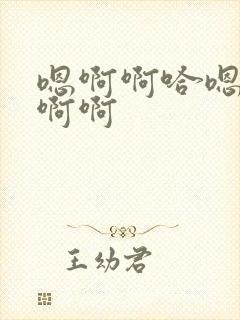 嗯啊啊哈嗯
啊啊
王幼君